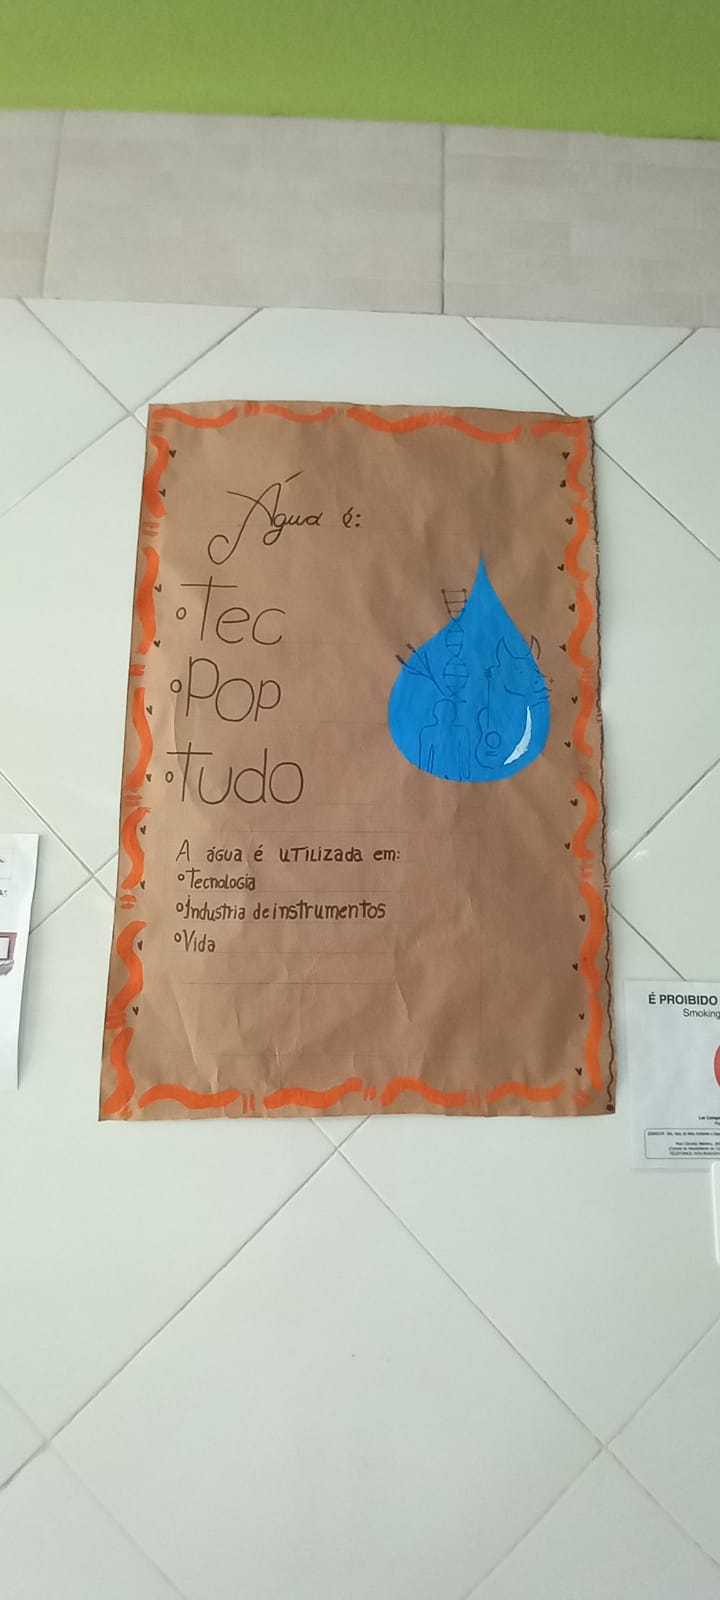 Água é:
Tec
Pop
Tudo
A água é utilizada em:
Tecnologia
Industria de instrumentos
Vida
É PROIBIDO
Smoking